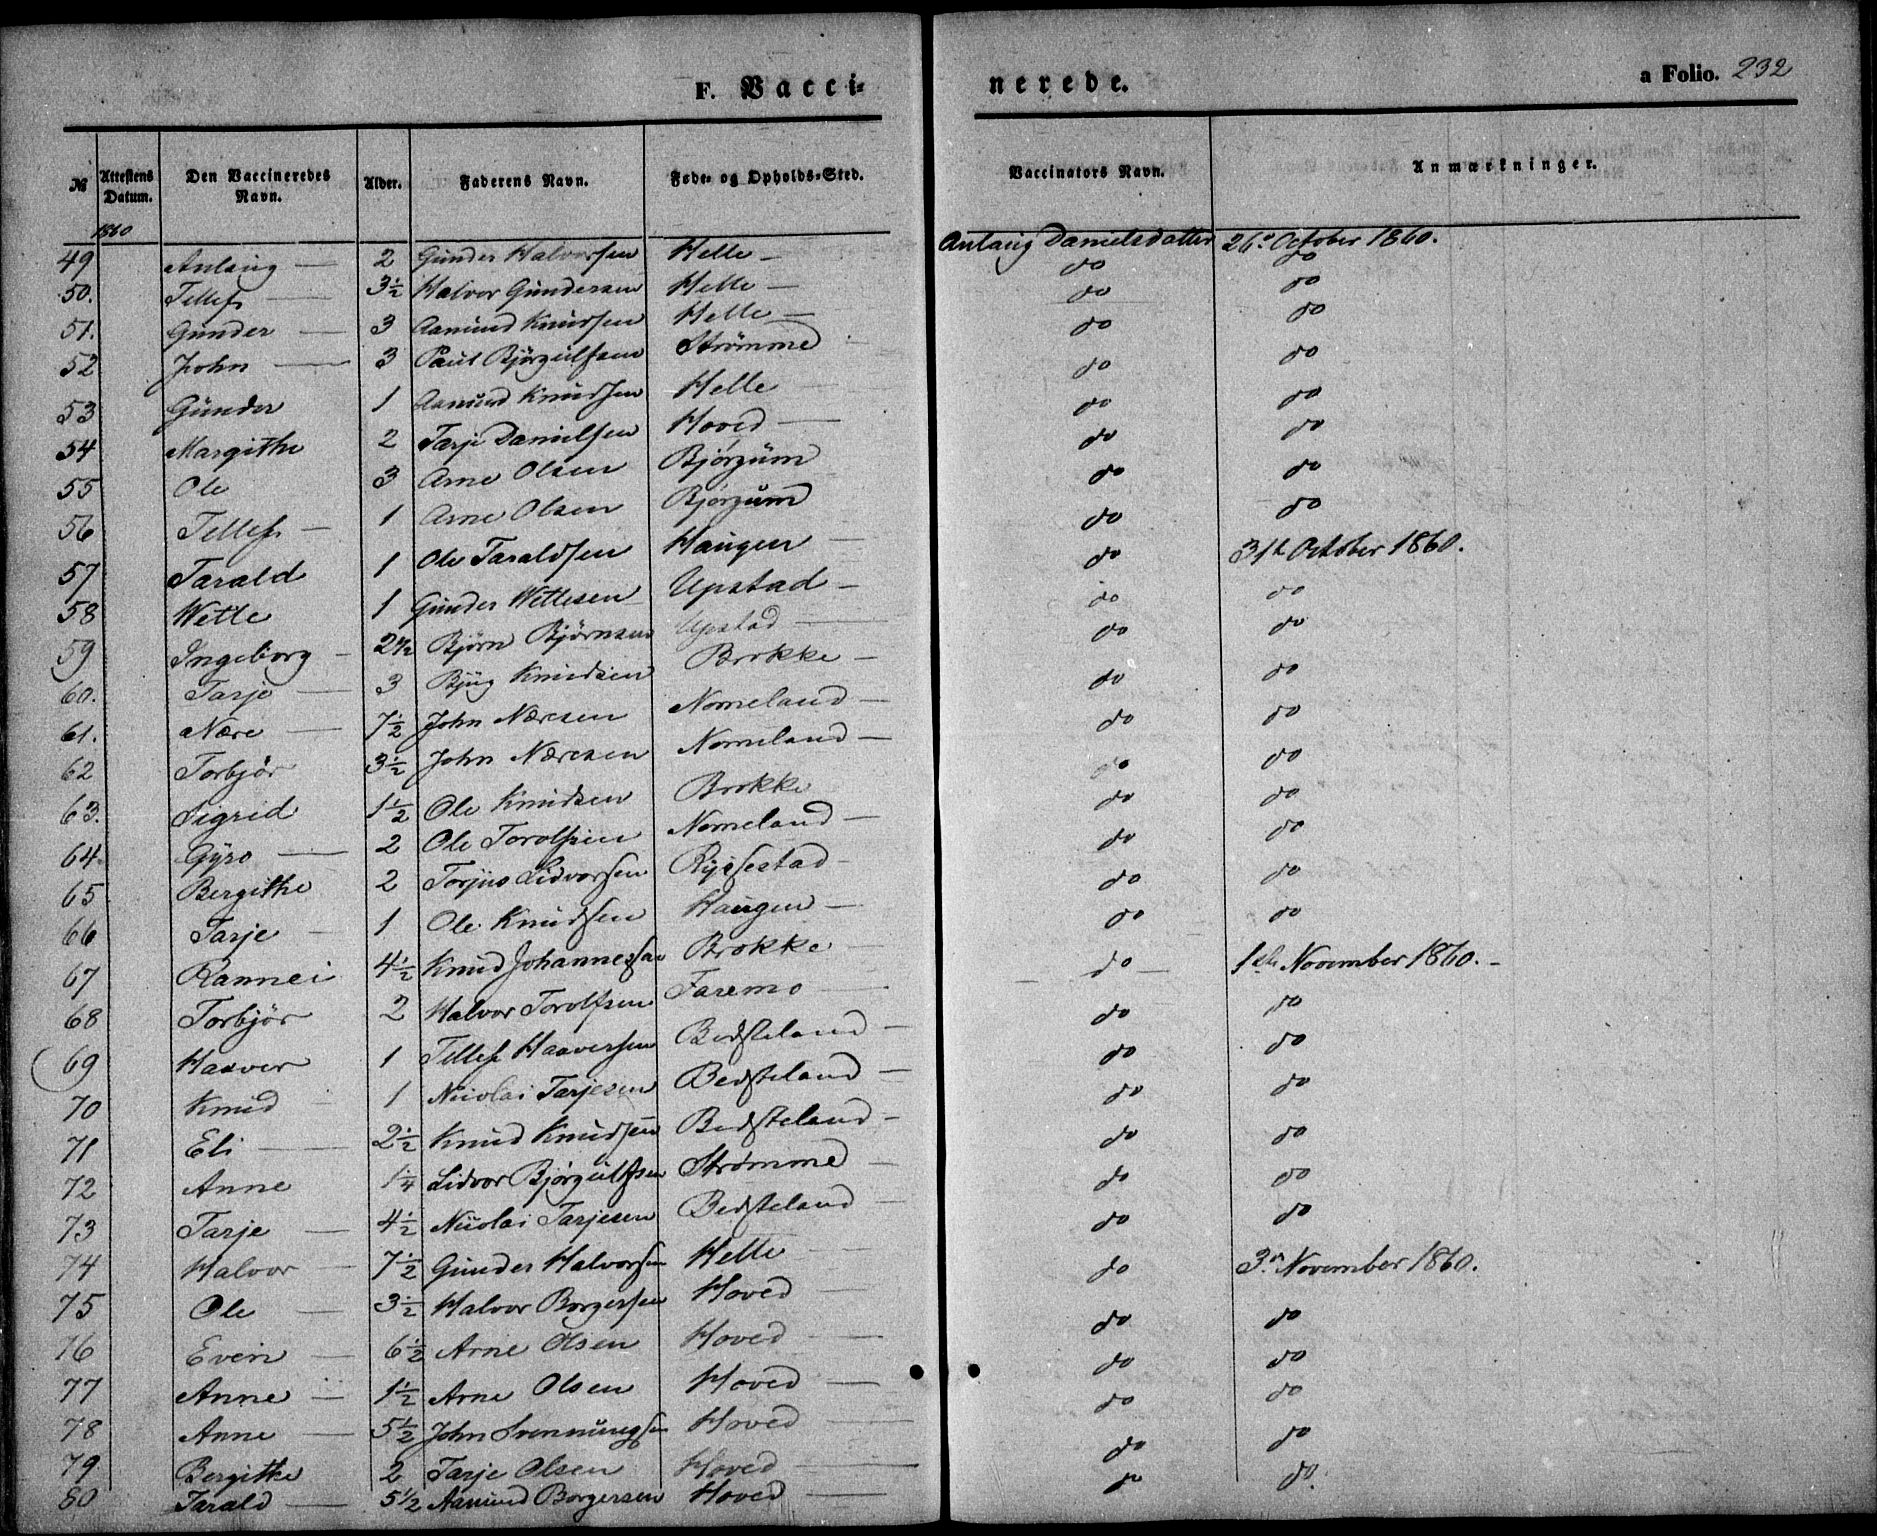 F. Vacci- nerede. a Folio. 232
№ Attestens Datum. Den Vaccineredes Navn. Alder. Faderens Navn. Føde- og Opholds-Sted. Vaccinators Navn. Anmærkninger.
1860
49 Anlaug — 2 Gunder Halvorsen Helle — Anlaug Danielsdatter 26d October 1860.
50. Tellef — 3½ Halvor Gundersen Helle — do do
51. Gunder — 3 Aamund Knudsen Helle — do do
52 John — 3 Paul Bjørgulfsen Strømme do do
53 Gunder 1 Aamund Knudsen Helle — do do
54 Margithe 2 Tarje Danielsen Hoved — do do
55 Ole 3 Arne Olsen Bjørgum do do
56 Tellef — 1 Arne Olsen Bjørgum do do
57 Tarald 1 Ole Taraldsen Haugen — do 31te October 1860.
58 Wetle 1 Gunder Wettesen Upstad — do do
59 Ingeborg — 2½ Bjørn Bjørnsen Upstad — do do
60. Tarje — 3 Bjug Knudsen Brokke — do do
61. Nære — 7½ John Næresen Nomeland — do do
62 Torbjør 3½ John Næresen Nomeland — do do
63. Sigrid 1½ Ole Knudsen Brokke do do
64. Gyro — 2 Ole Torolfsen Nomeland — do do
65 Bergithe 2 Torjus Lidvorsen Ryssestad do do
66 Tarje — 1 Ole Knudsen Haugen — do do
67 Rannei 4½ Knud Johannessen Brokke — do — 1ste November 1860. –
68 Torbjør 2 Halvor Torolfsen Faremo — do do
69 Haaver 1 Tellef Haaversen Besteland — do do
70 Knud — 1 Nicolai Tarjesen Besteland — do do
71 Eli — 2½ Knud Knudsen Besteland — do do
72 Anne 1¼ Lidvor Bjørgulfsen Strømme — do do
73 Tarje — 4½ Nicolai Tarjesen Besteland — do do
74 Halvor — 7½ Gunder Halvorsen Helle — do 3d November 1860.
75 Ole — 3½ Halvor Borgersen Hoved — do do
76 Even — 6½ Arne Olsen Hoved — do do
77 Anne — 1½ Arne Olsen Hoved — do do
78 Anne — 5½ John Svenningsen Hoved — do do
79 Bergithe 2 Tarje Olsen Hoved — do do.
80 Tarald — 5½ Aamund Borgersen Hoved —